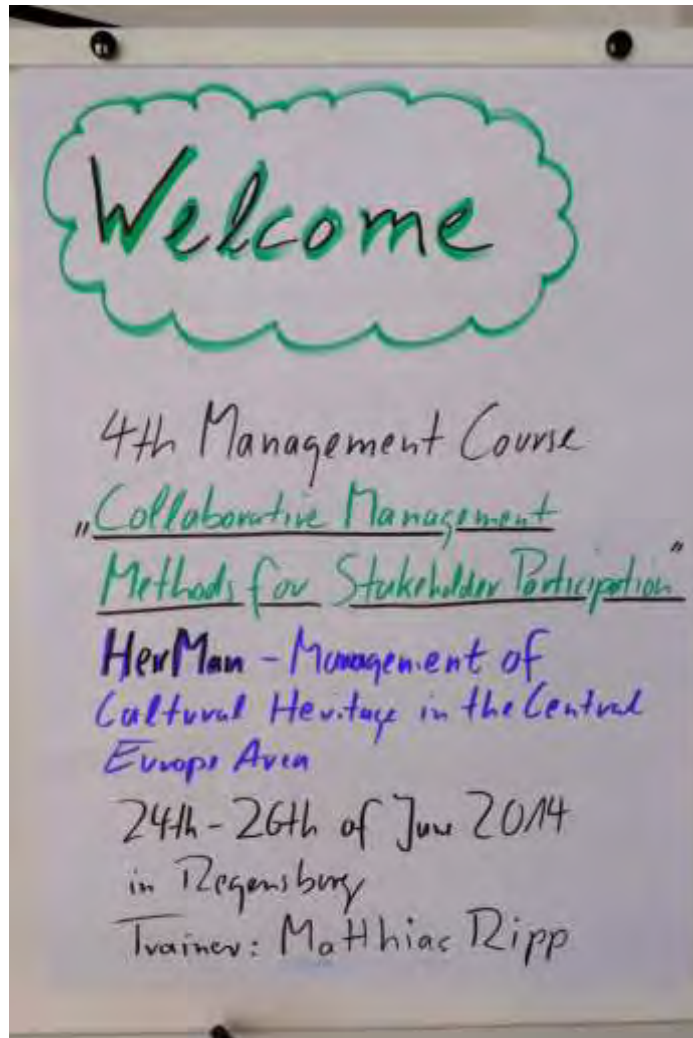 Welcome
4th Management Course
„Collaborative Management
Methods for Stakeholder Participation"
HerMan - Management of
Cultural Heritage in the Central
Europe Area
24th - 26th of June 2014
in Regensburg
Trainer: Matthias Ripp